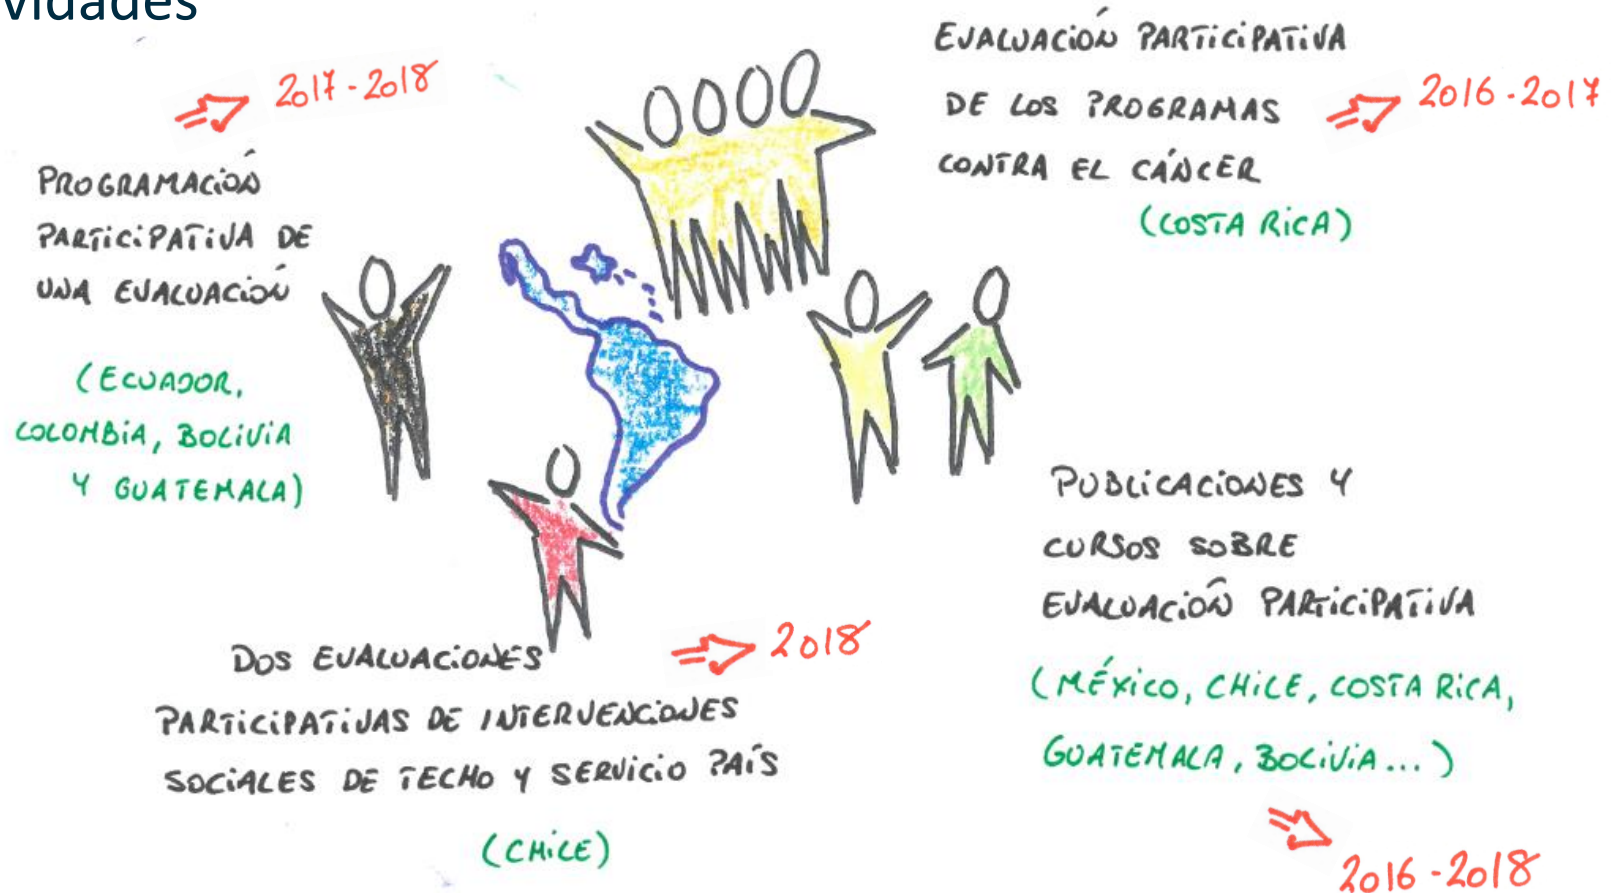 vidades
2017-2018
PROGRAMACIÓN
PARTICIPATIVA DE
UNA EVALUACIÓN
(ECUADOR,
COLOMBIA, BOLIVIA
Y GUATEMALA)
EVALUACIÓN PARTICIPATIVA
DE LOS PROGRAMAS
CONTRA EL CÁNCER
2016-2017
(COSTA RICA)
DOS EVALUACIONES
PARTICIPATIVAS DE INTERVENCIONES
SOCIALES DE TECHO Y SERVICIO PAÍS
2018
(CHILE)
PUBLICACIONES Y
CURSOS SOBRE
EVALUACIÓN PARTICIPATIVA
(MÉXICO, CHILE, COSTA RICA,
GUATEMALA, BOLIVIA...)
2016-2018